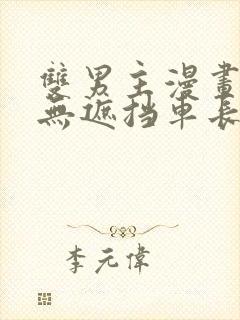 雙男主漫畫
無遮挡車長
李元偉